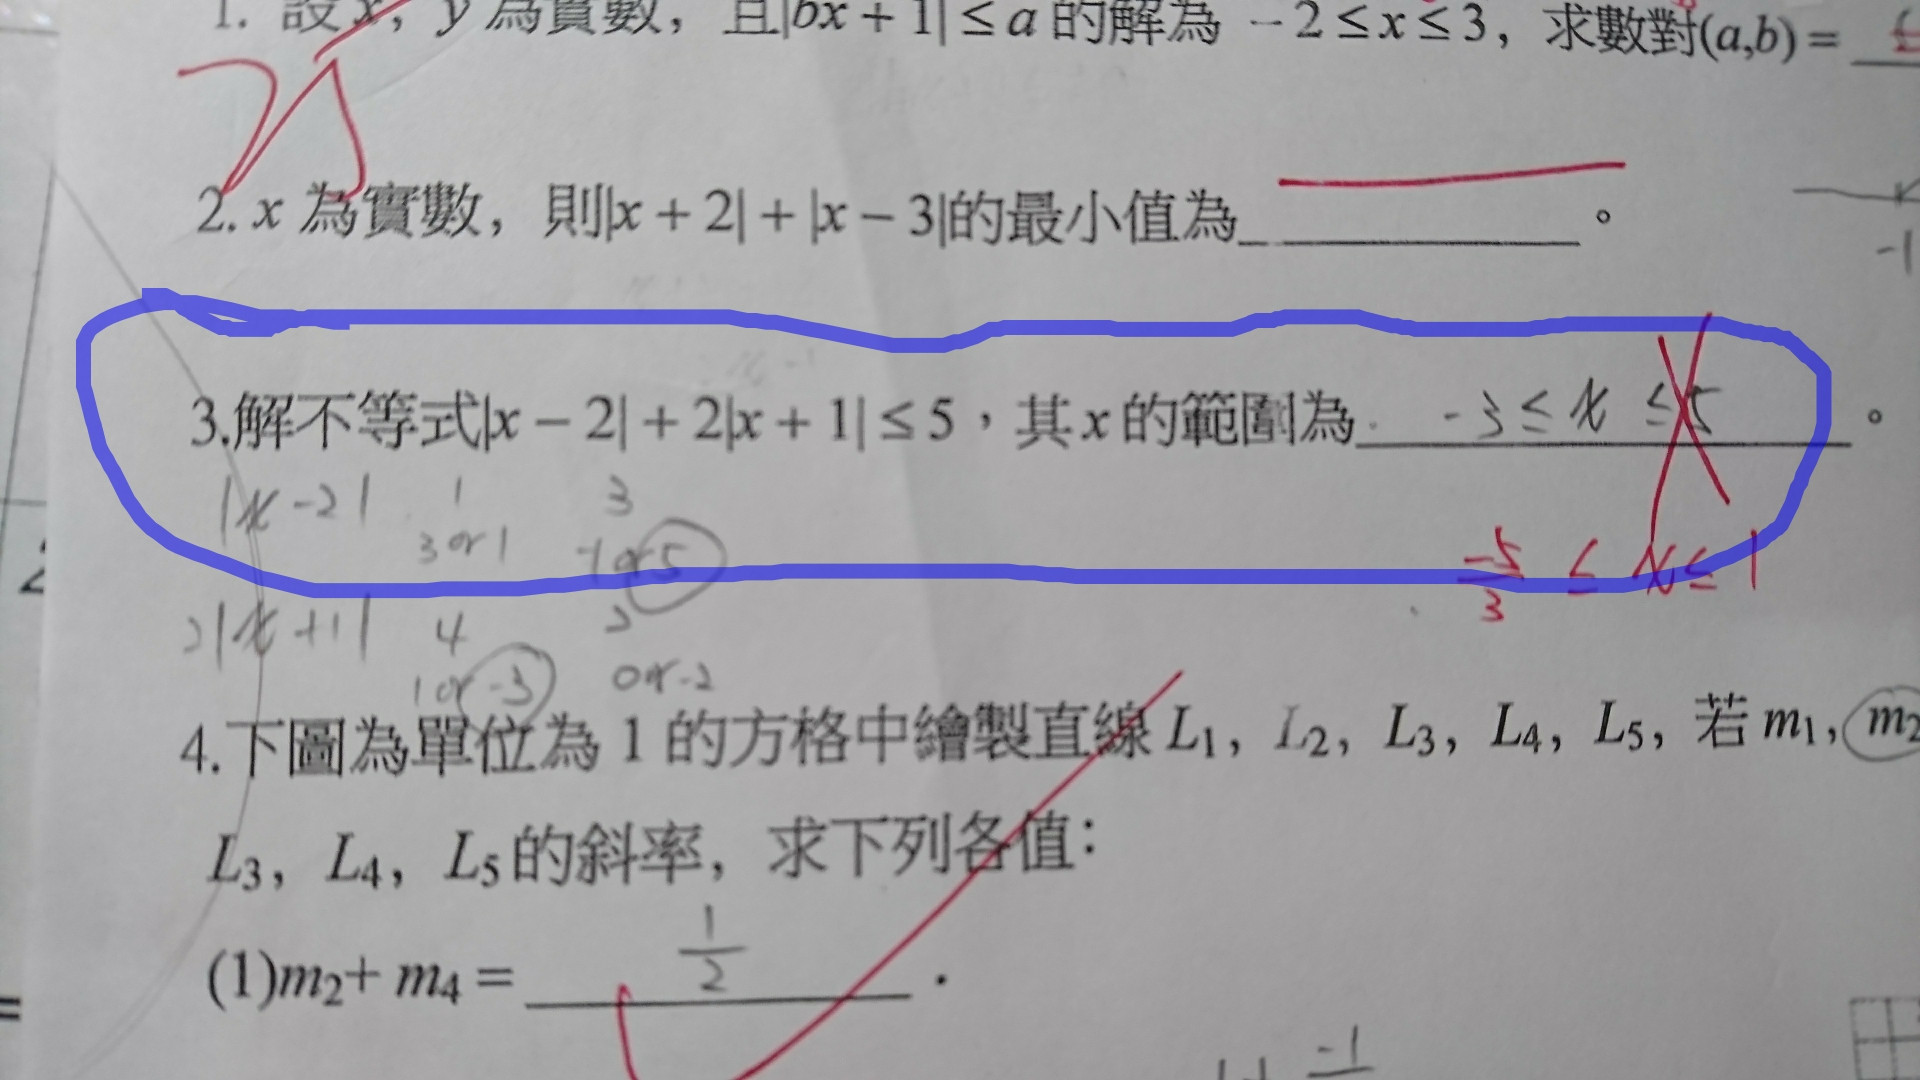 1. 設x，y為實數，且|bx + 1| ≤ a 的解為 －2 ≤ x ≤ 3，求數對(a,b) =
2. x 為實數，則|x + 2| + |x − 3|的最小值為 。
-1
3.解不等式|x − 2| + 2|x + 1| ≤ 5，其 x 的範圍為 -3 ≤ x ≤ 5 。
|x-2| 1 3
3 or 1 -1 or 5
-5/3 ≤ x ≤ 1
2|x+1| 4 2
1 or -3 0 or -2
4.下圖為單位為 1 的方格中繪製直線 L1，L2，L3，L4，L5，若 m1，m2
L3，L4，L5的斜率，求下列各值：
(1)m2+ m4 = 1/2 .
-1